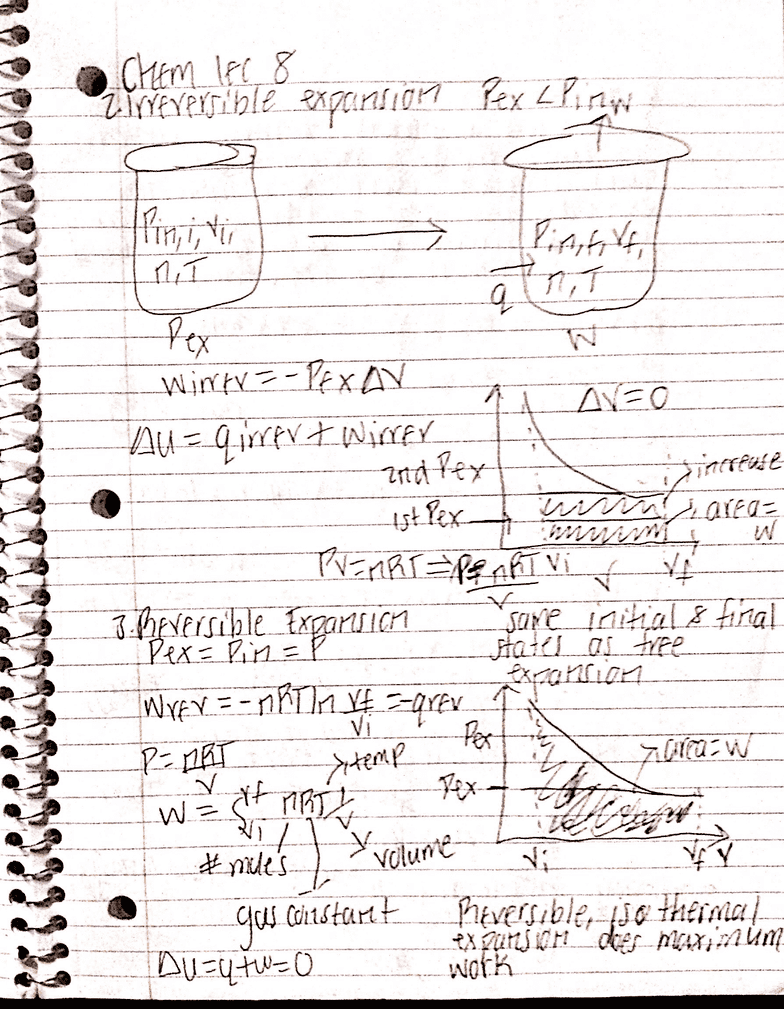 Chem lec 8
2. Irreversible expansion Pex < Pin
w
Pin,i, Vi,
n, T
Pin,f, Vf,
n, T
q
Pex
W
Wirrev = -Pex ΔV
ΔV=0
ΔU = qirrev + Wirrev
2nd Pex
increase
1st Pex
area=
w
PV=nRT ⇒ P= nRT
V
Vi
V
Vf
3. Reversible Expansion
Pex = Pin = P
same initial & final
states as free
expansion
Wrev = -nRTln Vf = -qrev
Vi
P = nRT
V
temp
W = ∫ Vf Vi nRT 1
V
# moles
volume
gas constant
ΔU=q+w=0
Pex
area=w
Pex
Vi
Vf V
Reversible, isothermal
expansion does maximum
work